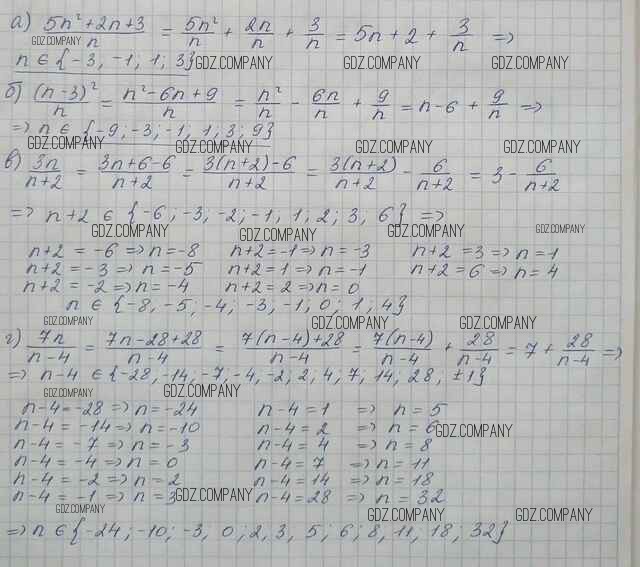 а) (5n² + 2n + 3)/n = 5n²/n + 2n/n + 3/n = 5n + 2 + 3/n ⇒
GDZ.COMPANY
n ∈ {-3, -1, 1, 3} GDZ.COMPANY GDZ.COMPANY GDZ.COMPANY
б) (n-3)²/n = (n² - 6n + 9)/n = n²/n - 6n/n + 9/n = n - 6 + 9/n ⇒
⇒ n ∈ {-9, -3, -1, 1, 3, 9}
GDZ.COMPANY GDZ.COMPANY GDZ.COMPANY GDZ.COMPANY
в) 3n/(n+2) = (3n+6-6)/(n+2) = (3(n+2)-6)/(n+2) = 3(n+2)/(n+2) - 6/(n+2) = 3 - 6/(n+2)
⇒ n+2 ∈ {-6; -3, -2; -1, 1; 2; 3, 6} ⇒
GDZ.COMPANY GDZ.COMPANY GDZ.COMPANY GDZ.COMPANY
n+2 = -6 ⇒ n = -8 n+2 = -1 ⇒ n = -3 n+2 = 3 ⇒ n = 1
n+2 = -3 ⇒ n = -5 n+2 = 1 ⇒ n = -1 n+2 = 6 ⇒ n = 4
n+2 = -2 ⇒ n = -4 n+2 = 2 ⇒ n = 0
n ∈ {-8, -5, -4; -3, -1; 0; 1; 4}
GDZ.COMPANY GDZ.COMPANY GDZ.COMPANY
г) 7n/(n-4) = (7n-28+28)/(n-4) = (7(n-4)+28)/(n-4) = 7(n-4)/(n-4) + 28/(n-4) = 7 + 28/(n-4) ⇒
⇒ n-4 ∈ {-28, -14, -7, -4, -2; 2; 4; 7, 14, 28, ±1}
GDZ.COMPANY GDZ.COMPANY
n-4 = -28 ⇒ n = -24 n-4 = 1 ⇒ n = 5
n-4 = -14 ⇒ n = -10 n-4 = 2 ⇒ n = 6 GDZ.COMPANY
n-4 = -7 ⇒ n = -3 n-4 = 4 ⇒ n = 8
n-4 = -4 ⇒ n = 0 n-4 = 7 ⇒ n = 11
n-4 = -2 ⇒ n = 2 n-4 = 14 ⇒ n = 18
n-4 = -1 ⇒ n = 3 GDZ.COMPANY n-4 = 28 ⇒ n = 32
GDZ.COMPANY GDZ.COMPANY GDZ.COMPANY
⇒ n ∈ {-24; -10; -3, 0; 2, 3, 5; 6; 8, 11, 18, 32}